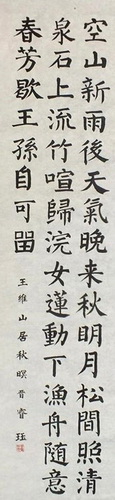 空山新雨後天氣晚来秋明月松間照清
泉石上流竹喧歸浣女蓮動下漁舟随意
春芳歇王孫自可留
王維山居秋暝